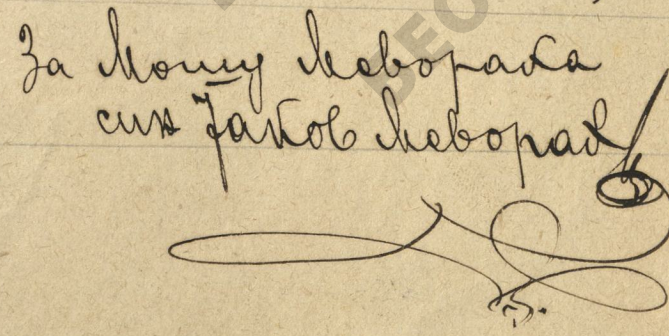 За Мошу Меворака
син Јаков Меворах